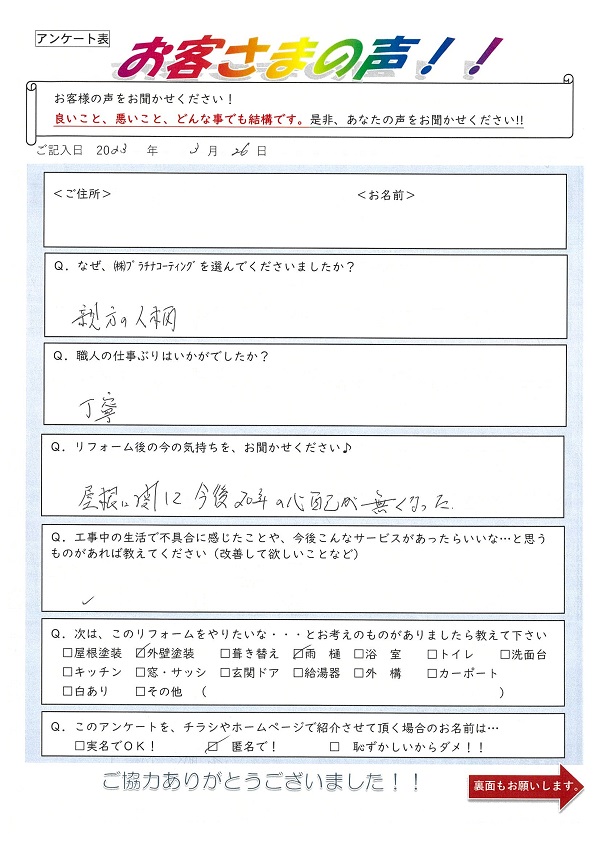 アンケート表
お客さまの声！！
お客様の声をお聞かせください！
良いこと、悪いこと、どんな事でも結構です。是非、あなたの声をお聞かせください!!
ご記入日 2023 年 3 月 26 日
＜ご住所＞ ＜お名前＞
Q．なぜ、㈱ﾌﾟﾗﾁﾅｺｰﾃｨﾝｸﾞを選んでくださいましたか？
親方の人柄
Q．職人の仕事ぶりはいかがでしたか？
丁寧
Q．リフォーム後の今の気持ちを、お聞かせください♪
屋根に関して今後20年の心配が無くなった
Q．工事中の生活で不具合に感じたことや、今後こんなサービスがあったらいいな…と思う
ものがあれば教えてください（改善して欲しいことなど）
Q．次は、このリフォームをやりたいな・・・とお考えのものがありましたら教えて下さい
□屋根塗装 ☑外壁塗装 □葺き替え ☑雨 樋 □浴 室 □トイレ □洗面台
□キッチン □窓・サッシ □玄関ドア □給湯器 □外 構 □カーポート
□白あり □その他 （ ）
Q．このアンケートを、チラシやホームページで紹介させて頂く場合のお名前は…
□実名でＯＫ！ ☑ 匿名で！ □ 恥ずかしいからダメ！！
ご協力ありがとうございました！！
裏面もお願いします。